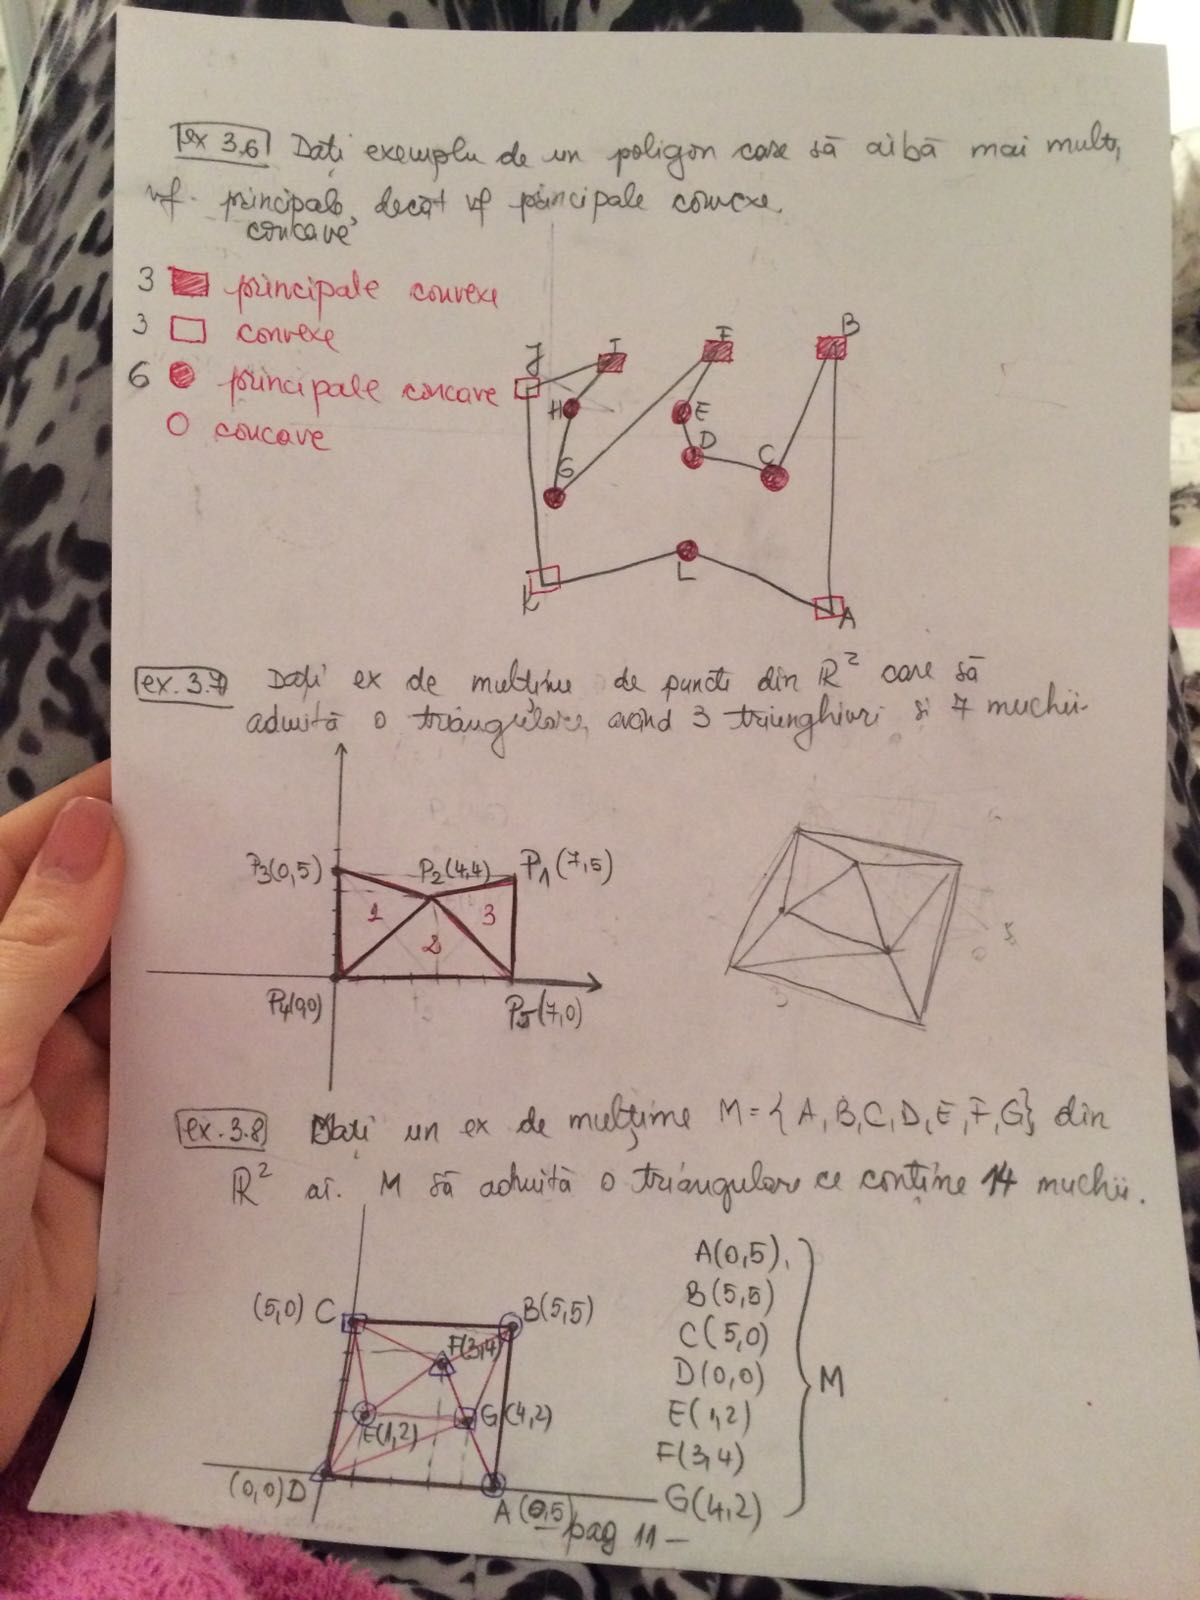 ex 3.6 Dați exemplu de un poligon care să aibă mai multe
vf. principale decât vf principale convexe.
concave
3 principale convexe
3 convexe
6 principale concave
concave
J I F B
H E D C
G
K L A
ex. 3.7 Dați ex de mulțime de puncte din R² care să
admită o triangulare, având 3 triunghiuri și 7 muchii.
P3(0,5) P2(4,4) P1(7,5)
1 2 3
P4(0,0) P5(7,0)
ex. 3.8 Dați un ex de mulțime M={A,B,C,D,E,F,G} din
R² aî. M să admită o triangulare ce conține 14 muchii.
A(0,5),
(5,0) C B(5,5) B(5,5)
F(3,4) C(5,0)
D(0,0) M
E(1,2) G(4,2) E(1,2)
F(3,4)
(0,0)D A(0,5) G(4,2)
- pag 11 -